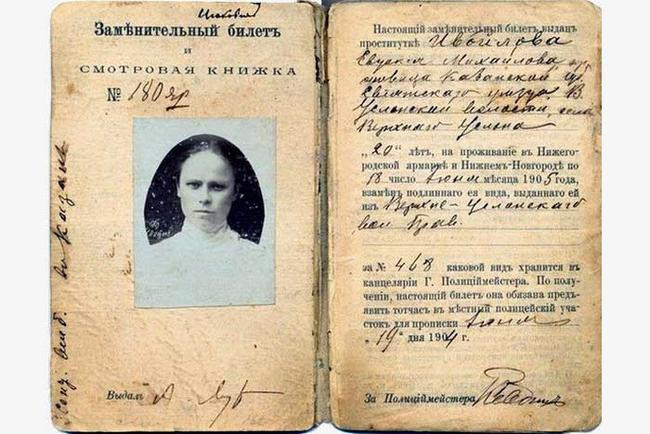 Замѣнительный билетъ
и
СМОТРОВАЯ КНИЖКА
№ 180 яр
Выдалъ
Настоящій замѣнительный билетъ выданъ
проституткѣ Ивойлова
Евдокія Михайлова
Казанской губ.
Свіяжского уѣзда В.
Услонской волости, села
Верхняго Услона
„20“ лѣтъ, на проживаніе въ Нижего-
родской ярмаркѣ и Нижнемъ-Новгородѣ по
18 число Іюня мѣсяца 1905 года,
взамѣнъ подлиннаго ея вида, выданнаго ей
изъ Верхне-Услонскаго
вол Прав.
за № 468 каковой видъ хранится въ
канцеляріи Г. Полиціймейстера. По полу-
ченіи, настоящій билетъ она обязана предъ-
явить тотчасъ въ мѣстный полицейскій уча-
стокъ для прописки Іюня
„19“ дня 1904 г.
За Полиціймейстера